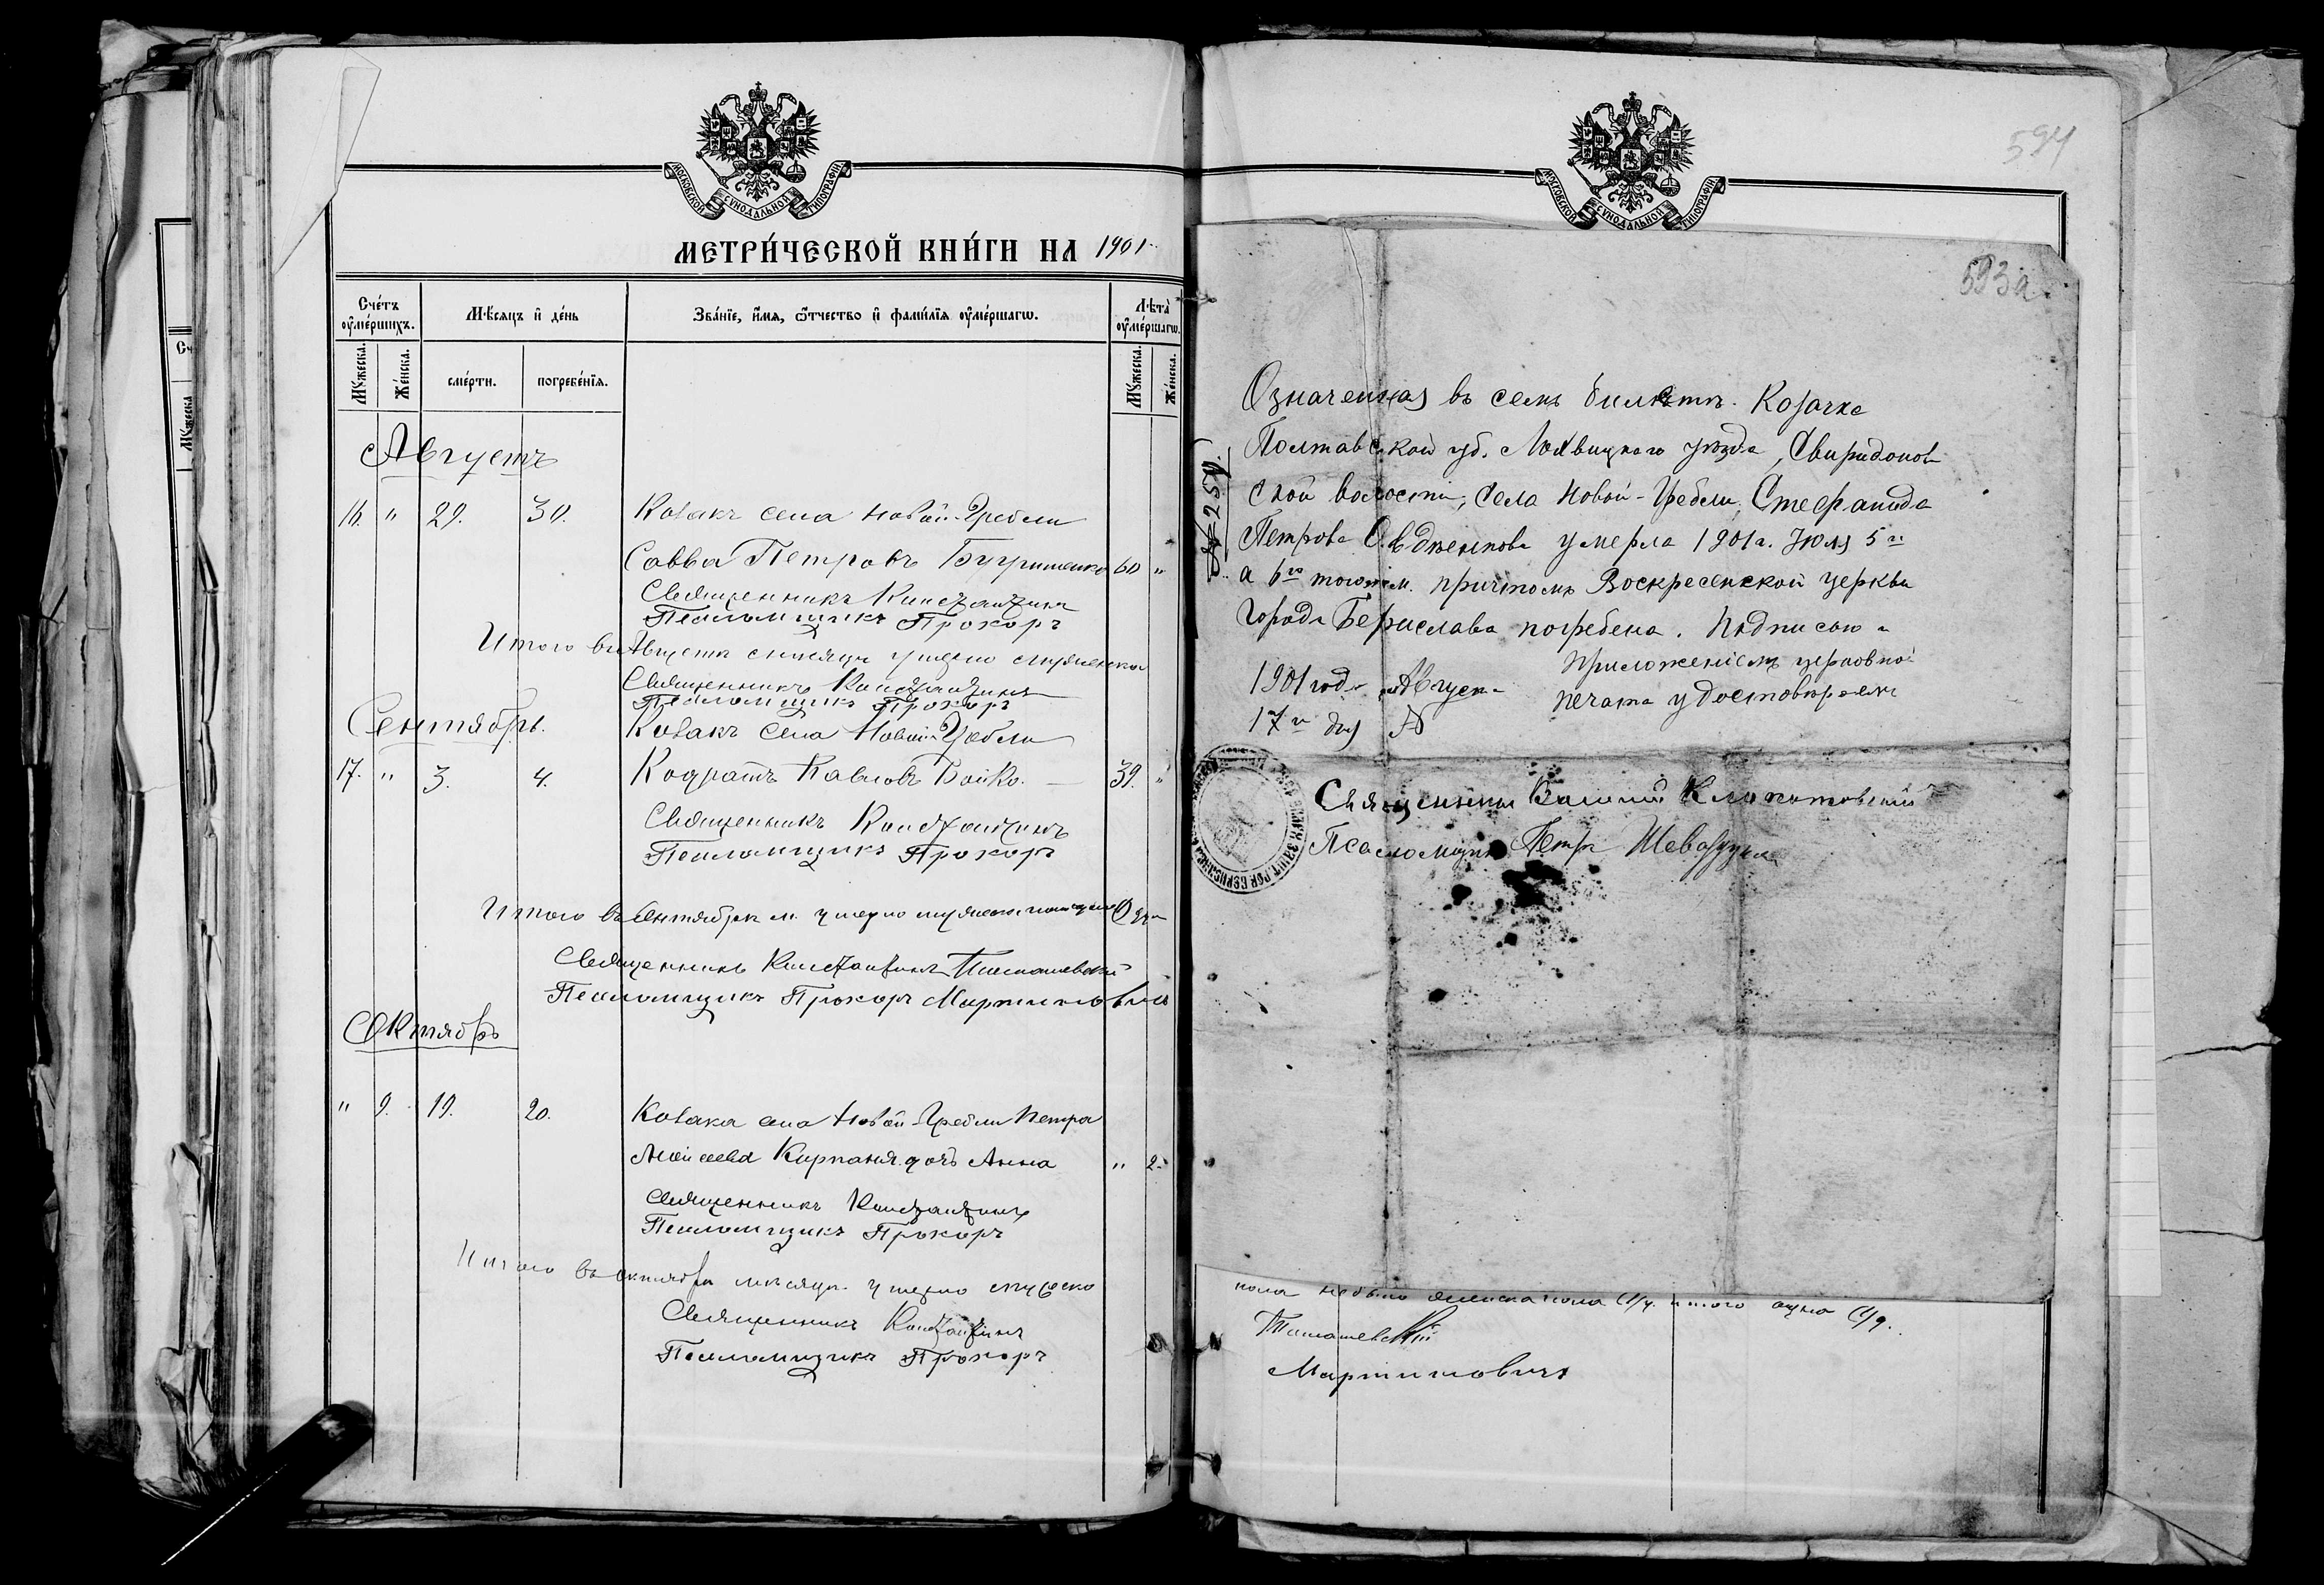 МОСКОВСКОЙ СУНОДАЛЬНОЙ ТИПОГРАФІИ
МЕТРИ́ЧЕСКОЙ КНИ́ГИ НА 1901
Сче́тъ оу҆ме́ршихъ.
Мѣ́сяцъ и҆ де́нь
Зва́нїе, и҆́мя, ѻ҆́тчество и҆ фами́лїя оу҆ме́ршагѡ.
Лѣта̀ оу҆ме́ршагѡ.
Мꙋ́жеска.
Же́нска.
сме́рти.
погребе́нїя.
Мꙋ́жеска.
Же́нска.
Августъ
16. " 29. 30. Козакъ села Новой-Гребли
Савва Петровъ Бугрименко 60 "
Священникъ Константинъ
Псаломщикъ Прохоръ
Итого въ Августѣ мѣсяцѣ умерло мужеска
Священникъ Константинъ
Псаломщикъ Прохоръ
Сентябрь.
Козакъ села Новой-Гребли
17. " 3. 4. Кодратъ Павловъ Бойко. 39. "
Священникъ Константинъ
Псаломщикъ Прохоръ
Итого въ Сентябрѣ м. умерло мужеска пола
Священникъ Константинъ
Псаломщикъ Прохоръ Мартиновичъ
Октябрь
" 9. 19. 20. Козака села Новой-Гребли Петра
Моисеева Кирпаня дочь Анна " 2.
Священникъ Константинъ
Псаломщикъ Прохоръ
Итого въ Октябрѣ мѣсяцѣ умерло мужеска
Священникъ Константинъ
Псаломщикъ Прохоръ
МОСКОВСКОЙ СУНОДАЛЬНОЙ ТИПОГРАФІИ
594
593а
Означенная въ семъ билетѣ Козачка
Полтавской губ. Лохвицкаго уѣзда, Свиридонов
ской волости, села Новой-Гребли, Стефанида
Петрова умерла 1901 г. Іюля 5 го
а 6го того же м. причтомъ Воскресенской церкви
города Берислава погребена. Подписью и
приложеніемъ церковной
1901 года Августа
печати удостовѣряемъ
17 го дня №
№ 259.
Священникъ
Псаломщикъ Петръ
пола не было женска пола 1/ч. итого одна 1/ч.
Мартиновичъ